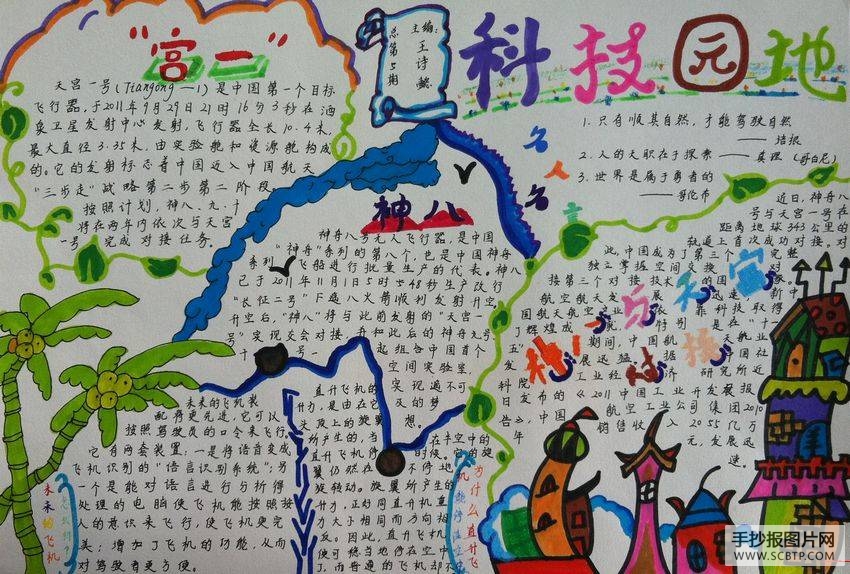 "宫一"
天宫一号(Tiangong—1)是中国第一个目标
飞行器,于2011年9月29日21时16分3秒在酒
泉卫星发射中心发射,飞行器全长10.4米,
最大直径3.35米,由实验舱和资源舱构成
的。它的发射标志着中国近入中国航天
"三步走"战略第二步第二阶段。
按照计划,神八、九、十
将在两年内依次与天宫
一号完成对接任务。
主编:
王诗懿
总第5期
科技园地
名人名言
1. 只有顺其自然,才能驾驶自然
——培根
2. 人的天职在于探索——真理(哥白尼)
3. 世界是属于勇者的
——哥伦布
神八
神舟八号无人飞行器,是中国
"神舟"系列的第八个,也是中国神舟
系列飞船进行批量生产的代表。神八
已于2011年11月1日5时58秒生产改行
"长征二号"F遥八火箭顺利发射升空。
升空后,"神八"将与此前发射的"天宫一
号"实现交会对接,并和此后的神舟九号
十号一起组合中国首个
空间实验室,
实现遥不可
及的梦
想。
近日,神舟八
号与天宫一号在
距离地球343公里的
轨道上首次成功对接。对
此,中国成为了第三个完整
独立掌握空间交换对
接第三个对接技术的国家。
航空航天发展迅速,新中
国航天航空业依靠科技取得
了辉煌成就,特别是在"十一
五"期间,中国航天航业
发展迅猛,据中国社
科院工业经济研究所近
日发布的《2011中国工业开发展报
告》,中国航空工业公司集团2010
年销售收入2055亿万
元,发展迅
速。
神八与天宫一对接
未来的飞机装
配将更先进,它可以
按照驾驶员的口令来飞行,
它有两套装置:一是将语言变成
飞机识别的"语言识别系统";另
一个是能对语言进行分折得
处理的电脑使飞机能按照按
人的意识来飞行,使飞机更完
美,增加了飞机的功能,从而
对驾驶者更方便。
未来的飞机,
直升飞机的
升力,是由在它
头顶上的旋翼
所产生的,当在半空中的
直升飞机停时候。它的旋
翼仍然在不停地
旋转动。旋翼所产生的
升力,正好同直升机重
力大于相同而方向相
反。因此,直升飞机
便可稳当地停在空中
了,而普通的飞机却不
为什么直升飞
机能停法空中
手抄报图片网
WWW.SCBTP.COM